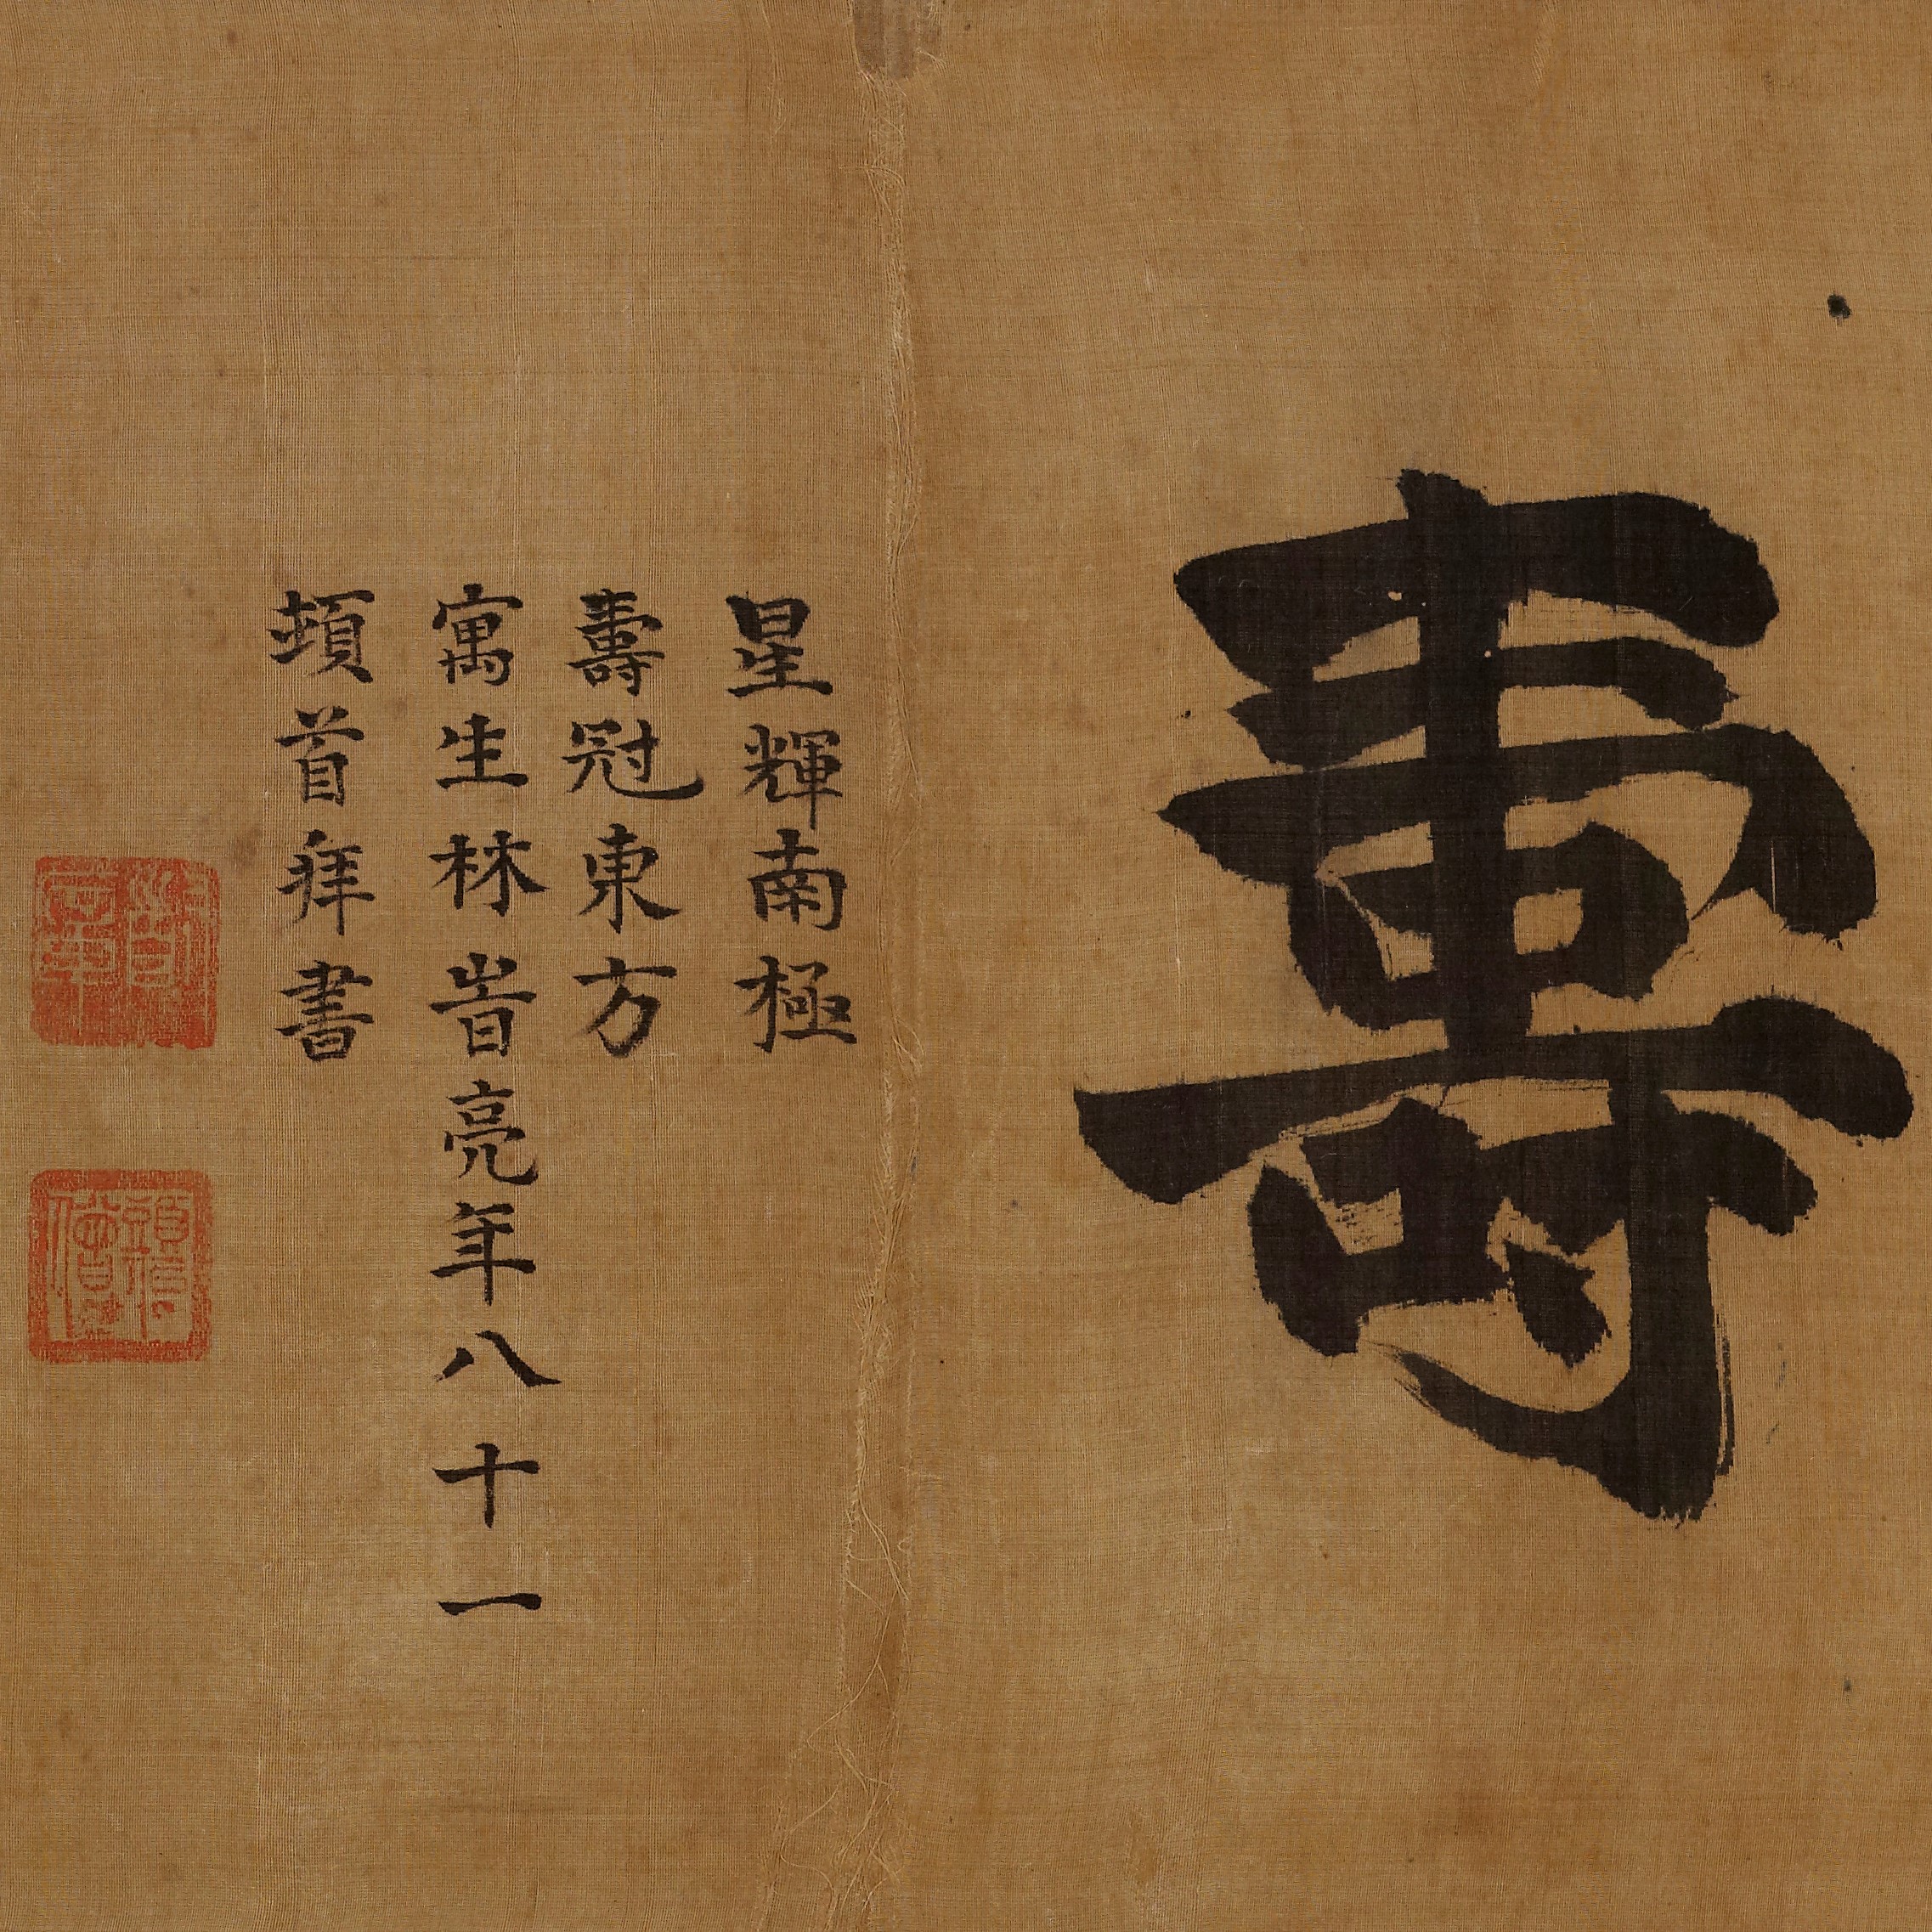 壽
星輝南極
壽冠東方
寓生林峕亮年八十一
頓首拜書